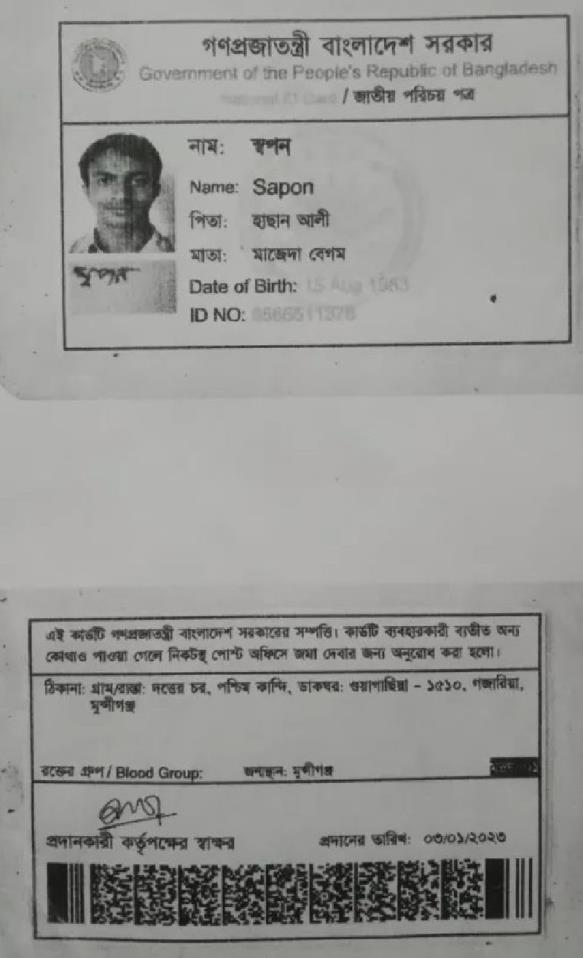 গণপ্রজাতন্ত্রী বাংলাদেশ সরকার
Government of the People's Republic of Bangladesh
National ID Card / জাতীয় পরিচয় পত্র
নাম: স্বপন
Name: Sapon
পিতা: হাছান আলী
মাতা: মাজেদা বেগম
স্বপন
Date of Birth: 15 Aug
ID NO:
এই কার্ডটি গণপ্রজাতন্ত্রী বাংলাদেশ সরকারের সম্পত্তি। কার্ডটি ব্যবহারকারী ব্যতীত অন্য
কোথাও পাওয়া গেলে নিকটস্থ পোস্ট অফিসে জমা দেবার জন্য অনুরোধ করা হলো।
ঠিকানা: গ্রাম/রাস্তা: দত্তের চর, পশ্চিম কান্দি, ডাকঘর: গুয়াগাছিয়া - ১৫১০, গজারিয়া,
মুন্সীগঞ্জ
রক্তের গ্রুপ / Blood Group: জন্মস্থান: মুন্সীগঞ্জ
প্রদানকারী কর্তৃপক্ষের স্বাক্ষর প্রদানের তারিখ: ০৩/০১/২০২৩